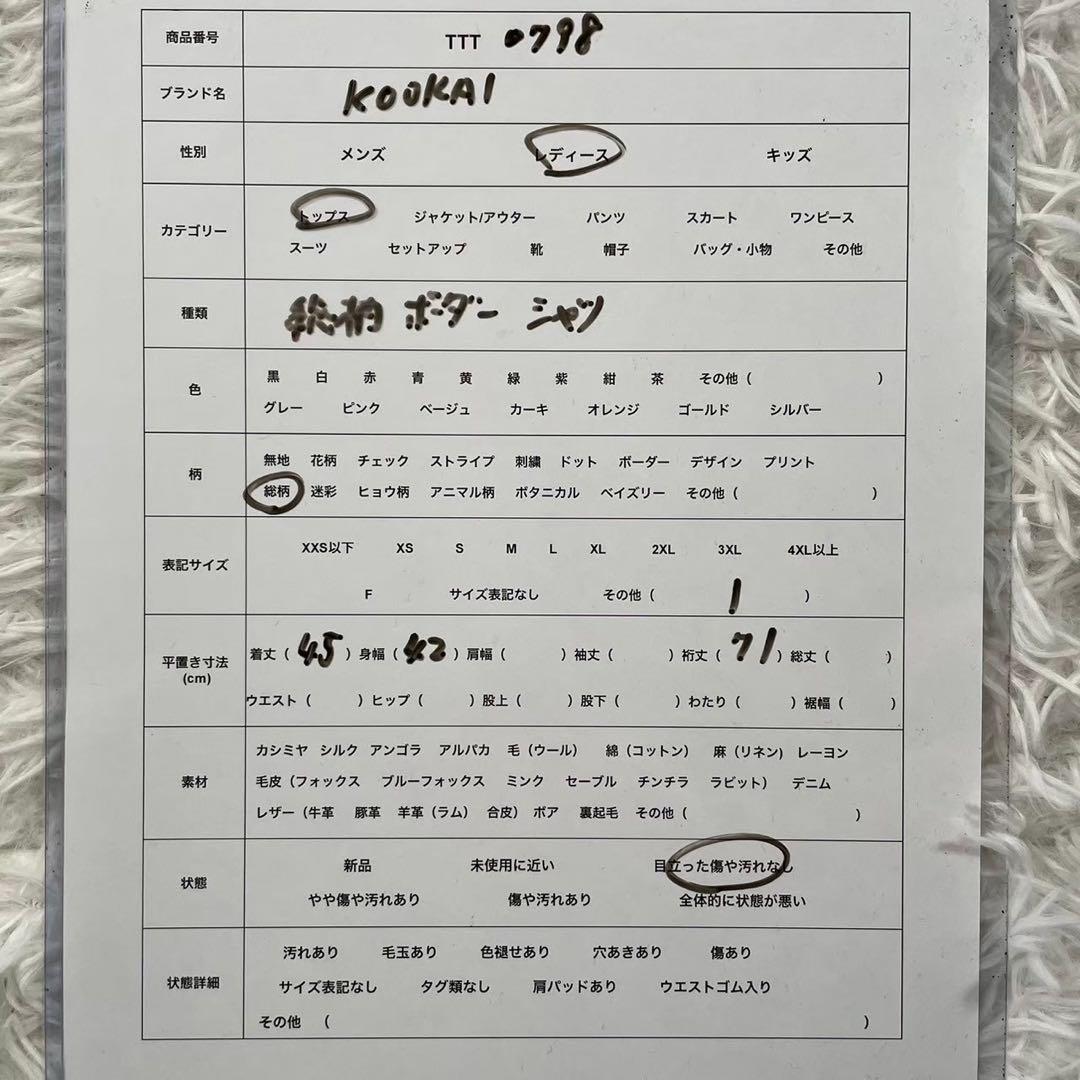 商品番号 TTT 0798
ブランド名 KOOKAI
性別 メンズ レディース キッズ
カテゴリー トップス ジャケット/アウター パンツ スカート ワンピース
スーツ セットアップ 靴 帽子 バッグ・小物 その他
種類 総柄 ボーダー シャツ
色 黒 白 赤 青 黄 緑 紫 紺 茶 その他（ ）
グレー ピンク ベージュ カーキ オレンジ ゴールド シルバー
柄 無地 花柄 チェック ストライプ 刺繍 ドット ボーダー デザイン プリント
総柄 迷彩 ヒョウ柄 アニマル柄 ボタニカル ペイズリー その他（ ）
表記サイズ XXS以下 XS S M L XL 2XL 3XL 4XL以上
F サイズ表記なし その他（ 1 ）
平置き寸法 着丈（ 45 ）身幅（ 42 ）肩幅（ ）袖丈（ ）裄丈（ 71 ）総丈（ ）
(cm)
ウエスト（ ）ヒップ（ ）股上（ ）股下（ ）わたり（ ）裾幅（ ）
素材 カシミヤ シルク アンゴラ アルパカ 毛（ウール） 綿（コットン） 麻（リネン) レーヨン
毛皮（フォックス ブルーフォックス ミンク セーブル チンチラ ラビット） デニム
レザー（牛革 豚革 羊革（ラム） 合皮） ボア 裏起毛 その他（ ）
状態 新品 未使用に近い 目立った傷や汚れなし
やや傷や汚れあり 傷や汚れあり 全体的に状態が悪い
状態詳細 汚れあり 毛玉あり 色褪せあり 穴あきあり 傷あり
サイズ表記なし タグ類なし 肩パッドあり ウエストゴム入り
その他 （ ）